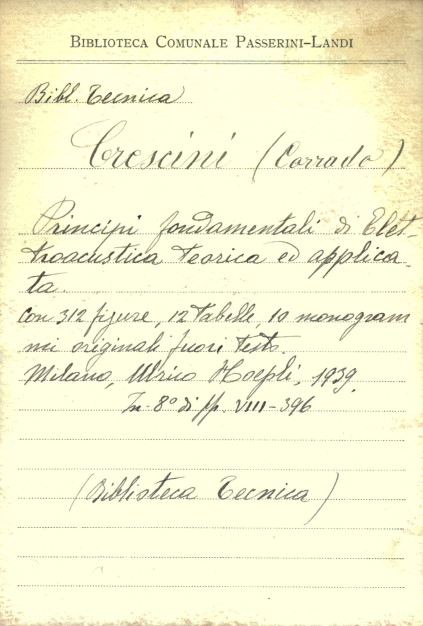 BIBLIOTECA COMUNALE PASSERINI-LANDI
Bibl. Tecnica
Crescini (Corrado)
Principi fondamentali di Elet-
troacustica teorica ed applica-
ta.
con 312 figure, 12 tabelle, 10 monogram
mi originali fuori testo.
Milano, Ulrico Hoepli, 1939.
In-8° di pp. VIII-396
(Biblioteca Tecnica)